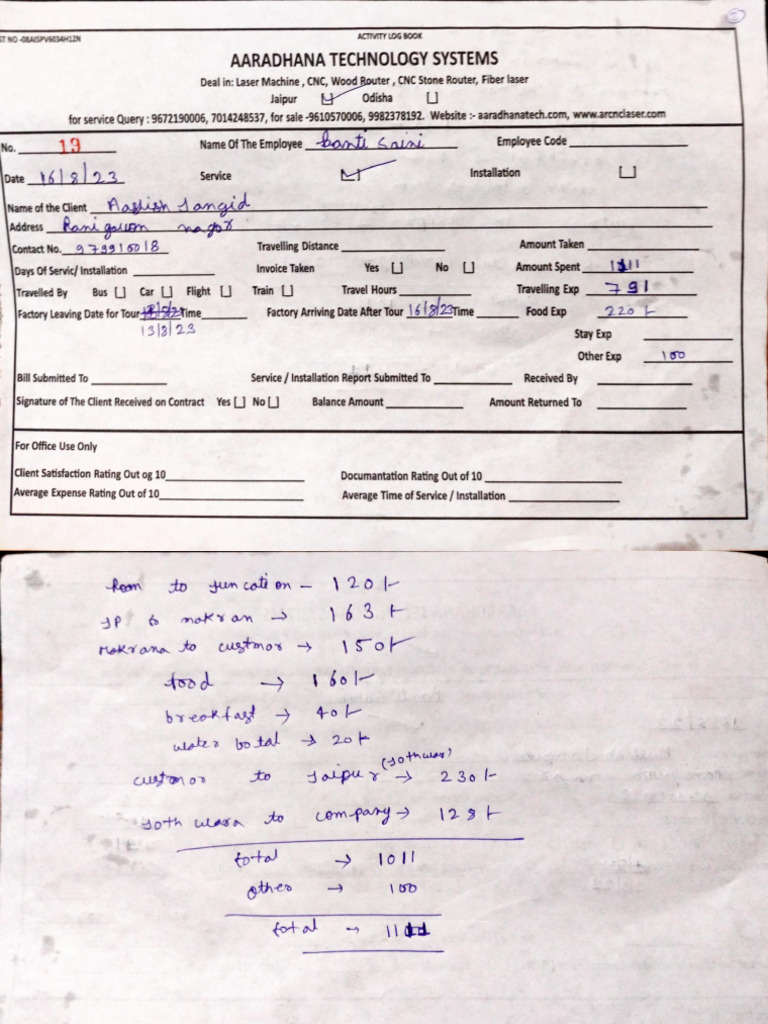 ST NO -08AISPV6034H1ZN ACTIVITY LOG BOOK
AARADHANA TECHNOLOGY SYSTEMS
Deal in: Laser Machine , CNC, Wood Router , CNC Stone Router, Fiber laser
Jaipur Odisha
for service Query : 9672190006, 7014248537, for sale -9610570006, 9982378192. Website :- aaradhanatech.com, www.arcnclaser.com
No. 19 Name Of The Employee banti saini Employee Code
Date 16/8/23 Service Installation
Name of the Client Aashish Jangid
Address Rani gawon nagor
Contact No. 979916018 Travelling Distance Amount Taken
Days Of Servic/ Installation Invoice Taken Yes No Amount Spent 1111
Travelled By Bus Car Flight Train Travel Hours Travelling Exp 791
Factory Leaving Date for Tour Time Factory Arriving Date After Tour 16/8/23 Time Food Exp 220/-
13/8/23 Stay Exp
Other Exp 100
Bill Submitted To Service / Installation Report Submitted To Received By
Signature of The Client Received on Contract Yes No Balance Amount Amount Returned To
For Office Use Only
Client Satisfaction Rating Out og 10 Documantation Rating Out of 10
Average Expense Rating Out of 10 Average Time of Service / Installation
Room to juncation - 120/-
JP to makran → 163/-
Makrana to custmor → 150/-
food → 160/-
breakfast → 40/-
water botal → 20/-
custmor to Jaipur (Jothwar) → 230/-
Joth wara to company → 128/-
total → 1011
other → 100
total → 1111